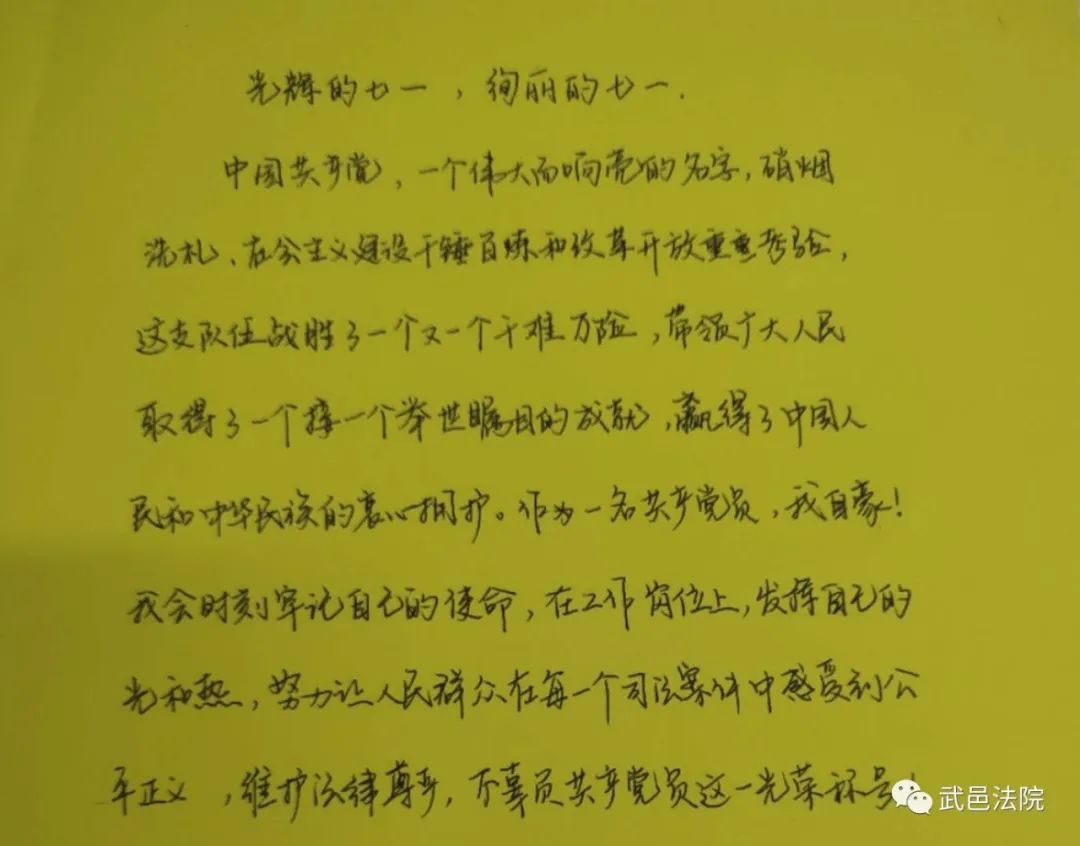 光辉的七一，绚丽的七一.
中国共产党，一个伟大而响亮的名字，硝烟
洗礼、社会主义建设千锤百炼和改革开放重重考验，
这支队伍战胜了一个又一个千难万险，带领广大人民
取得了一个接一个举世瞩目的成就，赢得了中国人
民和中华民族的衷心拥护。作为一名共产党员，我自豪！
我会时刻牢记自己的使命，在工作岗位上，发挥自己的
光和热，努力让人民群众在每一个司法案件中感受到公
平正义，维护法律尊严，不辜负共产党员这一光荣称号！
武邑法院